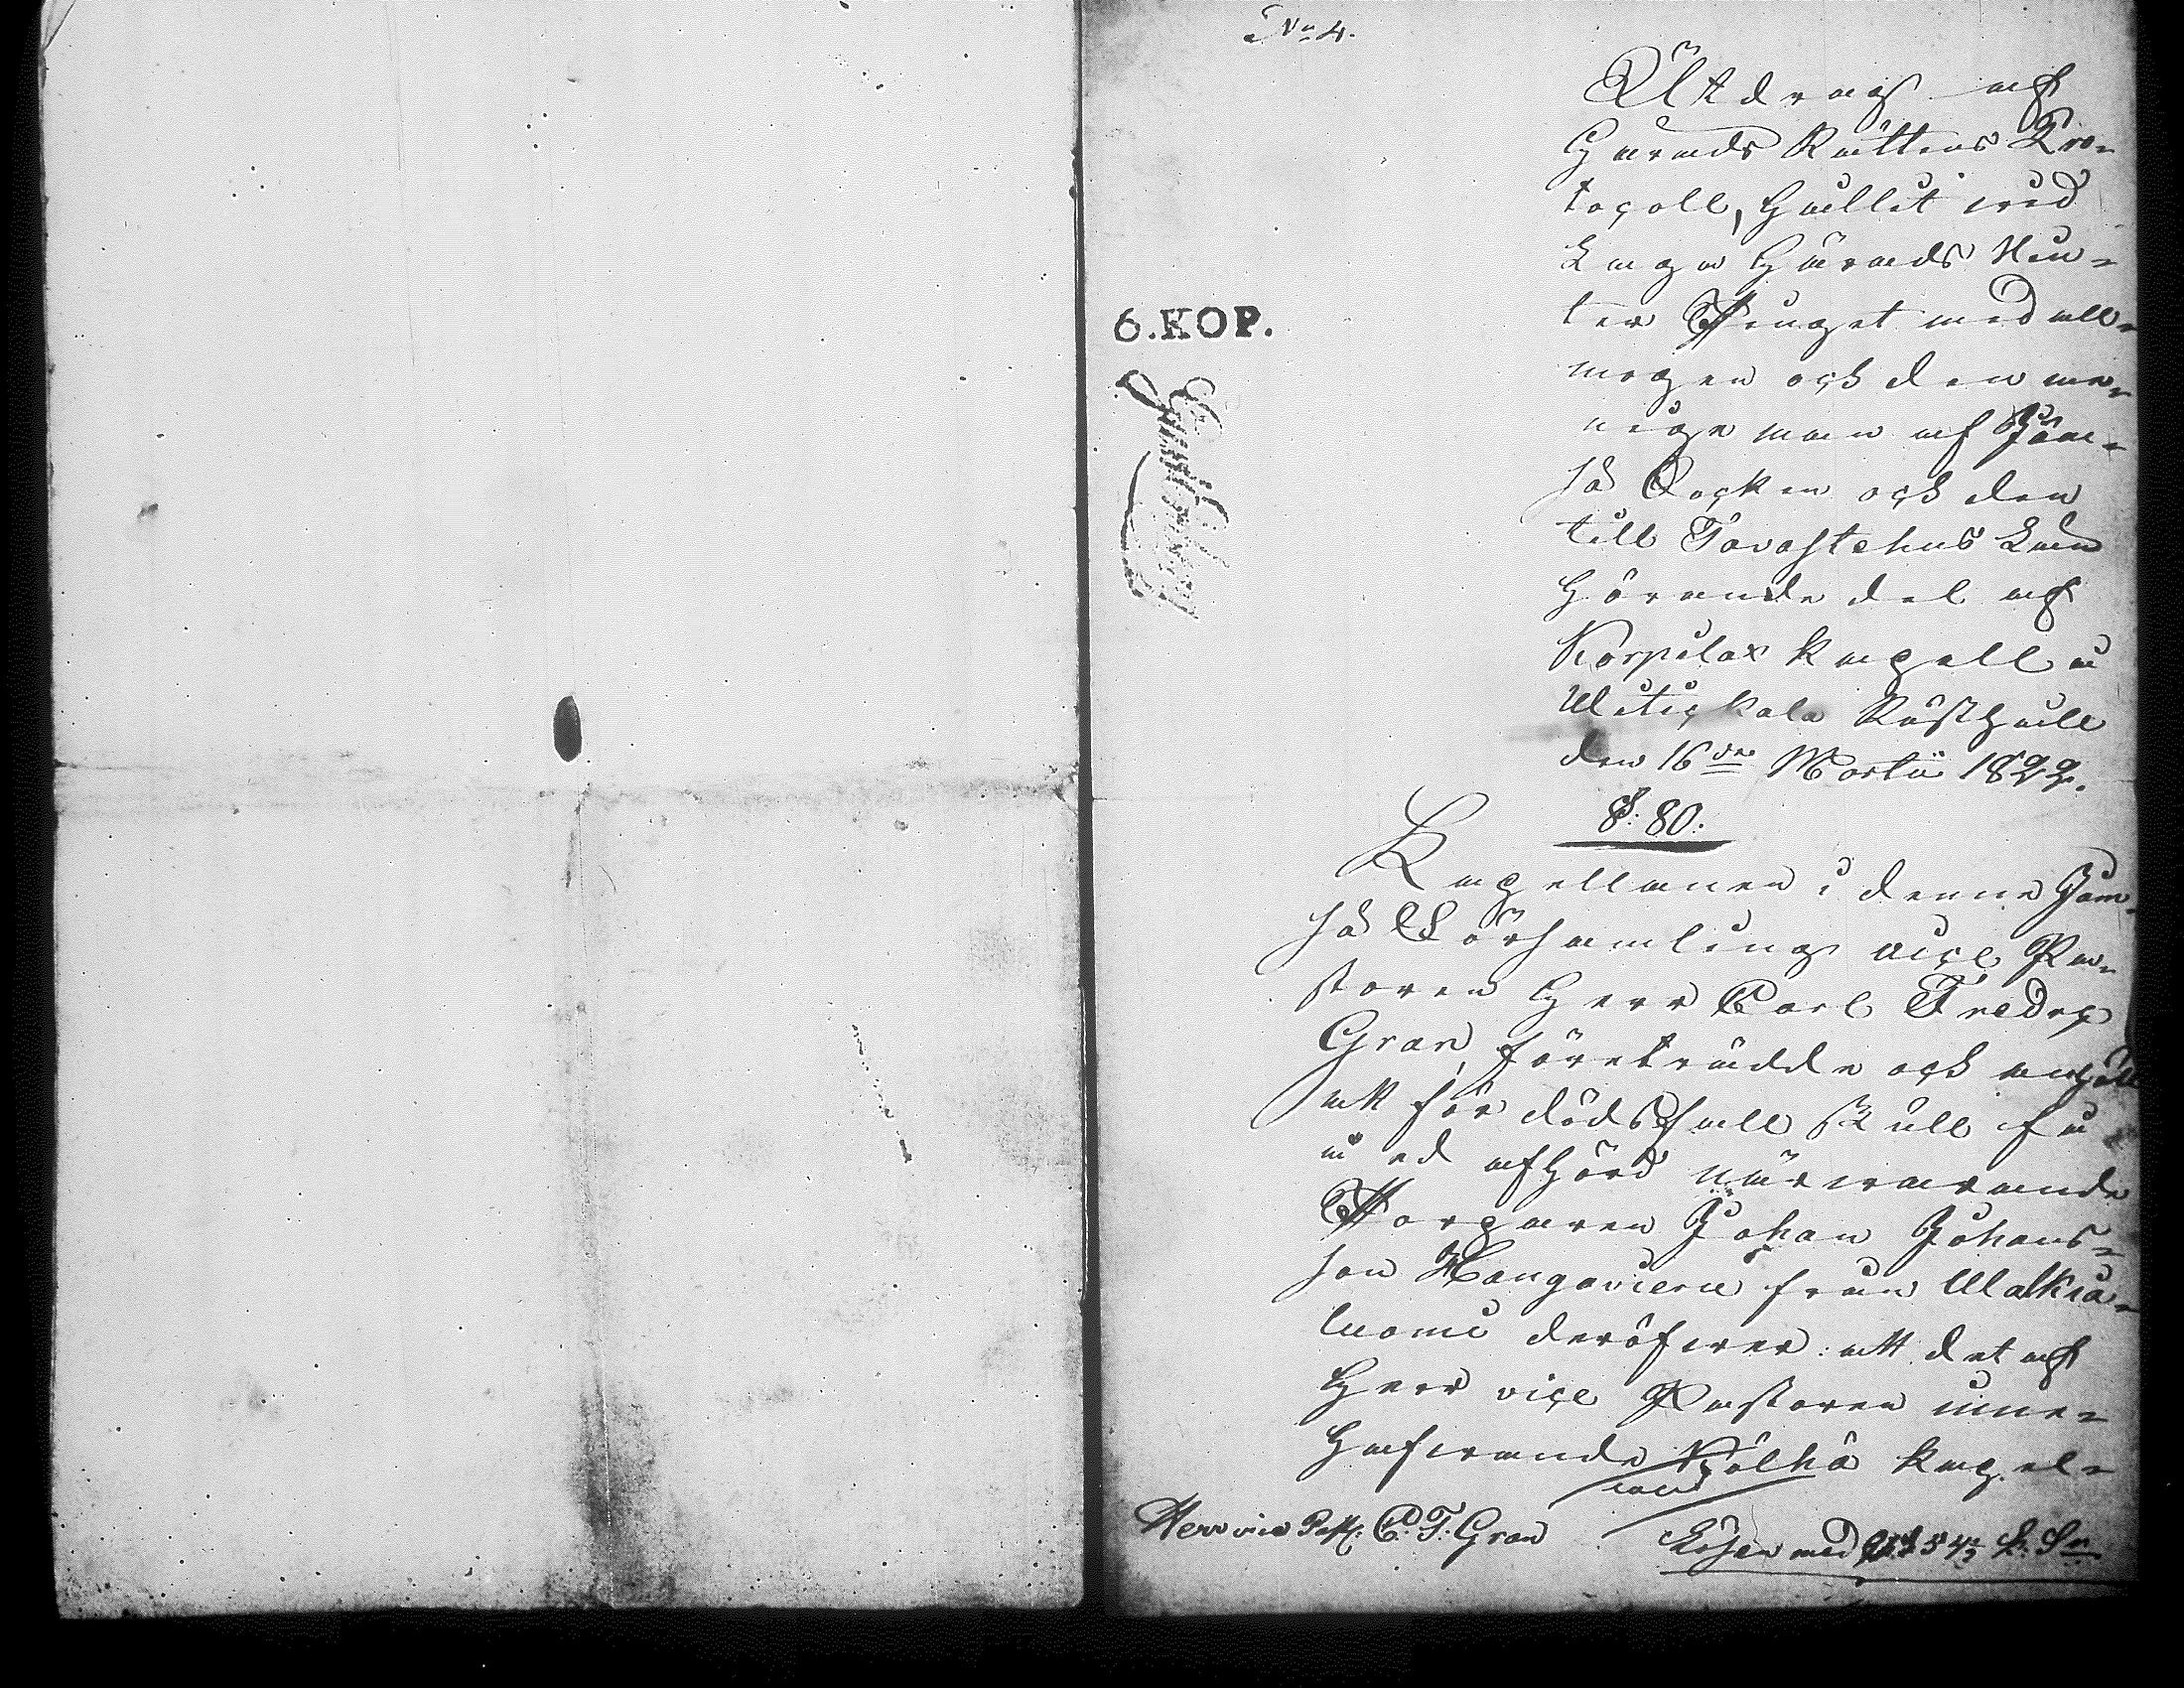 No 4.
Utdrag af
Härads Rättens Pro-
tocoll, hållit vid
Laga Härads Win-
ter Tinget med all-
mogen och den me-
nige man af Jäm-
sä Socken och den
till Tavastehus Län
hörande del af
Korpilax kapell å
Uitickala Rusthåll
den 16de Martii 1822.
6.KOP.
§: 80:
Kapellanen i denne Jäm-
sä Församling vice Pa-
storen Herr Carl Fredric
Gran, företrädde och anhöll
att för dödsfall skull få
med ed afhörd närvarande
Torparen Johan Johans-
son Hanganiemi från Walkia-
luomi deröfwer: att det af
Herr vice Pastoren inne-
hafwande Kölhä kapel-
Herr vice Past. C. F. Gran
Lösen med